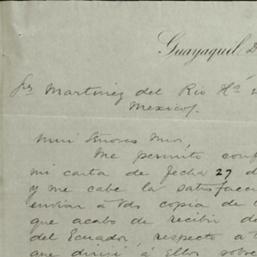 Guayaquil D
Sr Martinez del Rio Hs
Mexico.
Mui Señores Mios,
Me permito conf
mi carta de fecha 27 d
y me cabe la satisfacc
enviar á Vds copia de
que acabo de recibir de
del Ecuador, respecto a
que dirijí á Ellos sobre